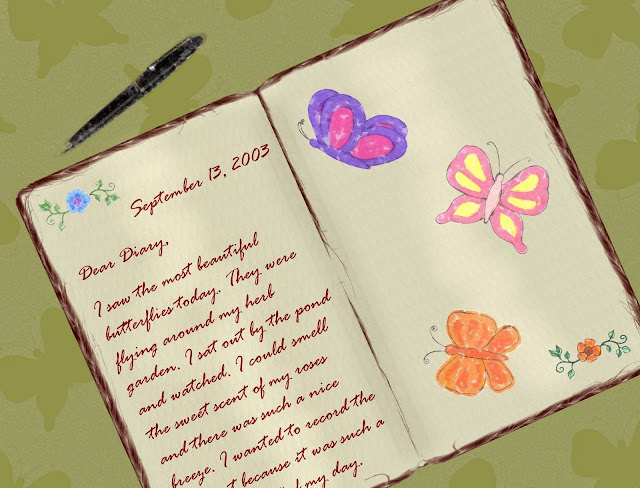 September 13, 2003
Dear Diary,
I saw the most beautiful
butterflies today. They were
flying around my herb
garden. I sat out by the pond
and watched. I could smell
the sweet scent of my roses
and there was such a nice
breeze. I wanted to record the
because it was such a
my day.